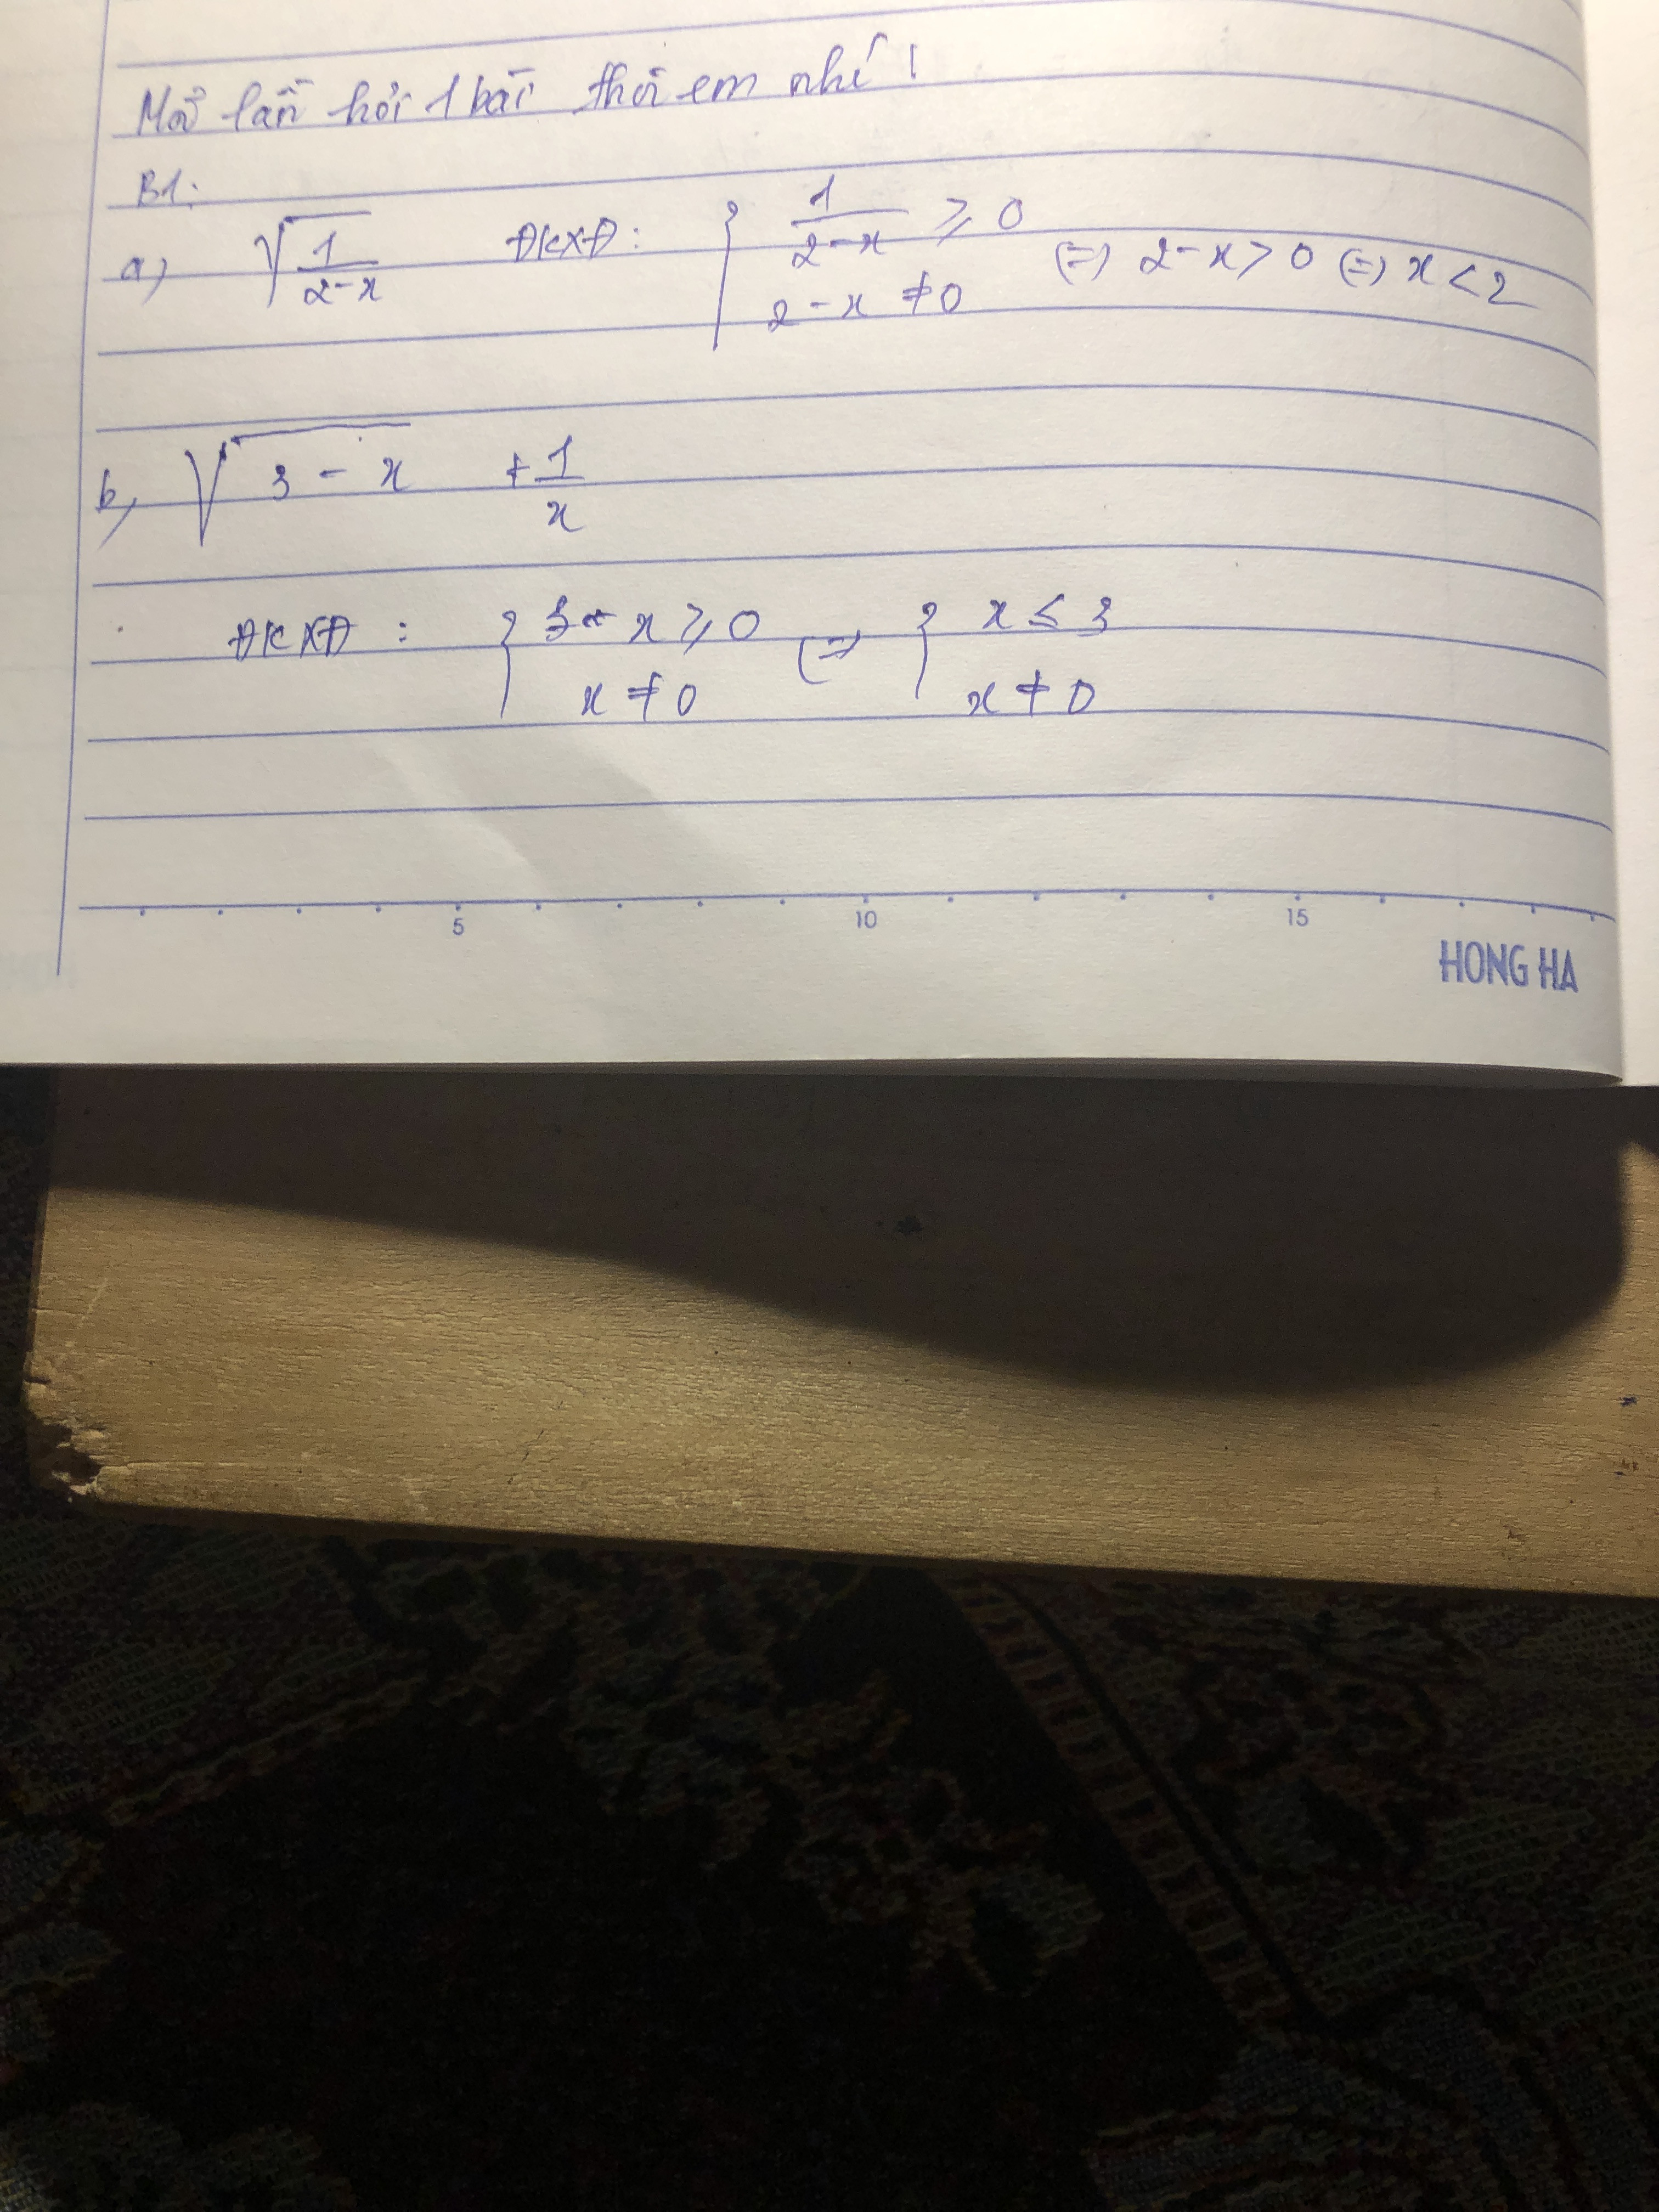 Mỗi lần hỏi 1 bài thôi em nhé!
B1:
a) √(1/(2-x)) ĐKXĐ: { 1/(2-x) ≥ 0 ; 2-x ≠ 0 (=) 2-x > 0 (=) x < 2
b, √(3-x) + 1/x
ĐKXĐ : { 3-x ≥ 0 ; x ≠ 0 (=) { x ≤ 3 ; x ≠ 0
5 10 15
HONG HA